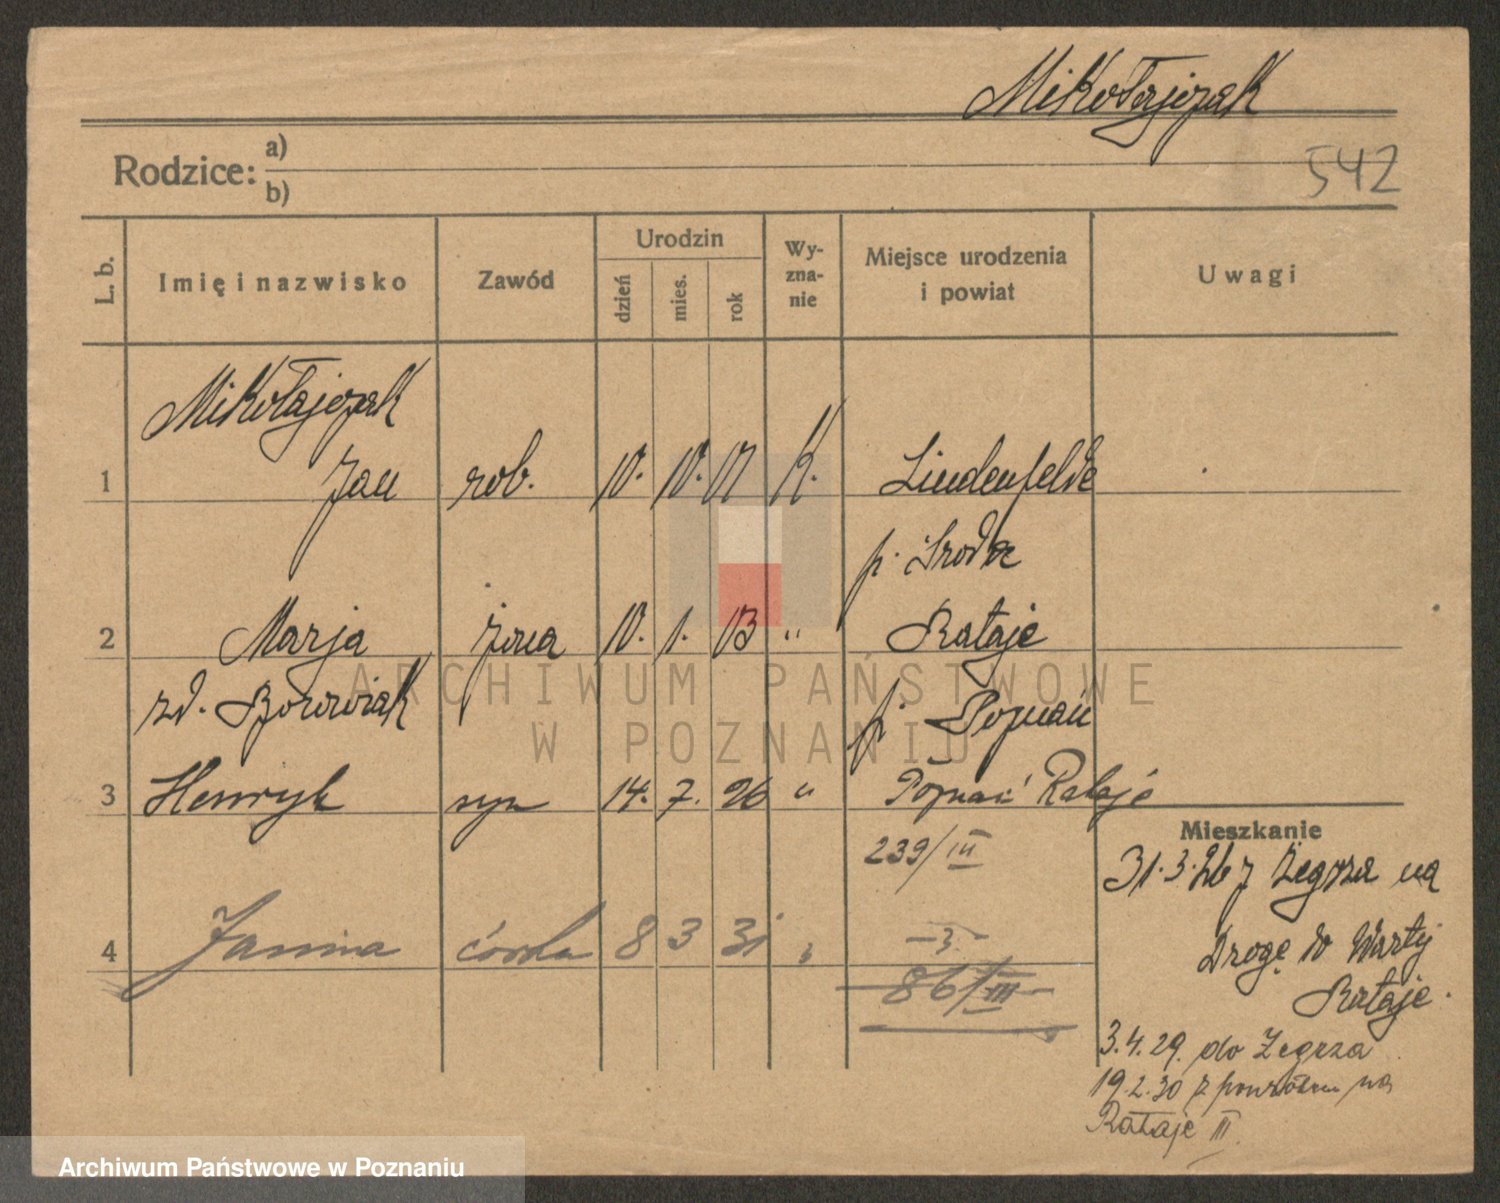 Mikołajczak
Rodzice: a)
b)
542
L. b.
Imię i nazwisko
Zawód
Urodzin
dzień
mies.
rok
Wy-
zna-
nie
Miejsce urodzenia
i powiat
Uwagi
Mikołajczak
1 Jan rob. 10. 10. 01 K. Lindenfelde
p. Środa
2 Marja żona 10. 1. 03 " Rataje
zd. Borowiak p. Poznań
3 Henryk syn 14. 7. 26 " Poznań Rataje
239/III
4 Janina córka 8 3 31 " -3.-
86/III
Mieszkanie
31.3.26 z Zegrza na
Drogę do Warty
Rataje.
3.4.29. do Zegrza
19.2.30 z powrotem na
Rataje III.
ARCHIWUM PAŃSTWOWE
W POZNANIU
Archiwum Państwowe w Poznaniu